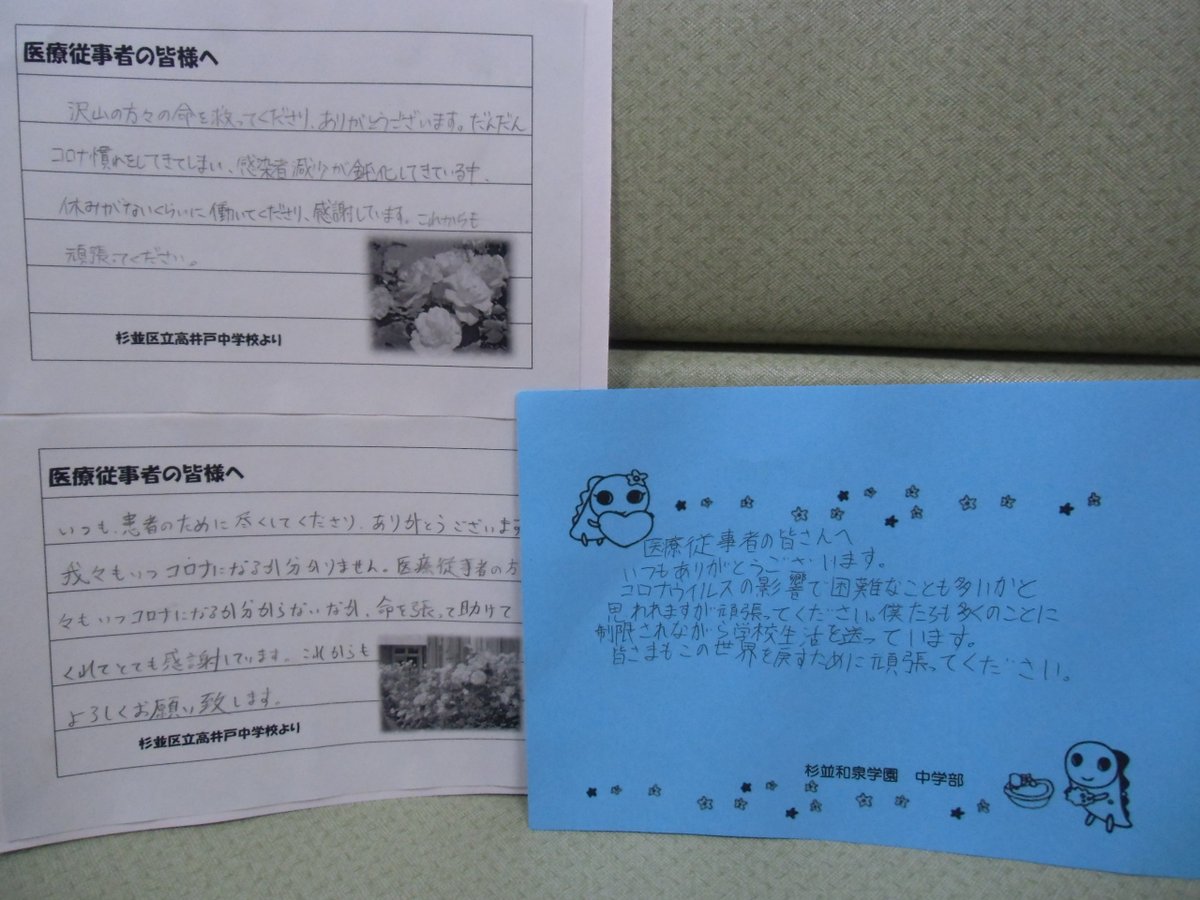 医療従事者の皆様へ
沢山の方々の命を救ってくださり、ありがとうございます。だんだん
コロナ慣れをしてきてしまい、感染者減少が鈍化してきている中、
休みがないくらいに働いてくださり、感謝しています。これからも
頑張ってください。
杉並区立高井戸中学校より
医療従事者の皆様へ
いつも、患者のために尽くしてくださり、ありがとうございます
我々もいつコロナになるか分かりません。医療従事者の方
々もいつコロナになるか分からないなか、命を張って助けて
くれてとても感謝しています。これからも
よろしくお願い致します。
杉並区立高井戸中学校より
医療従事者の皆さんへ
いつもありがとうございます。
コロナウイルスの影響で困難なことも多いかと
思われますが頑張ってください。僕たちも多くのことに
制限されながら学校生活を送っています。
皆さまもこの世界を戻すために頑張ってください。
杉並和泉学園 中学部